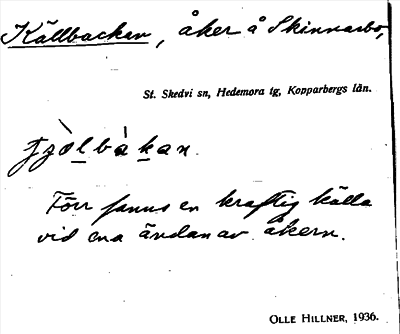 Källbacken, åker å Skinnarbo,
St. Skedvi sn, Hedemora tg, Kopparbergs län.
Förr fanns en kraftig källa
vid ena ändan av åkern.
OLLE HILLNER, 1936.